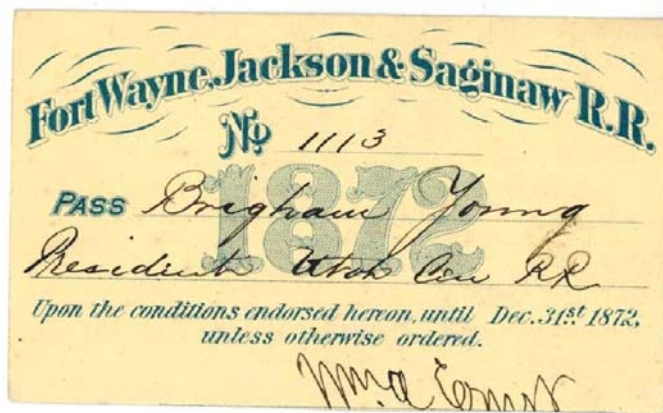 Fort Wayne, Jackson & Saginaw R.R.
No 1113
1872
PASS Brigham Young
President Utah Cen RR
Upon the conditions endorsed hereon, until Dec. 31st 1872,
unless otherwise ordered.
Wm. A. Ernst